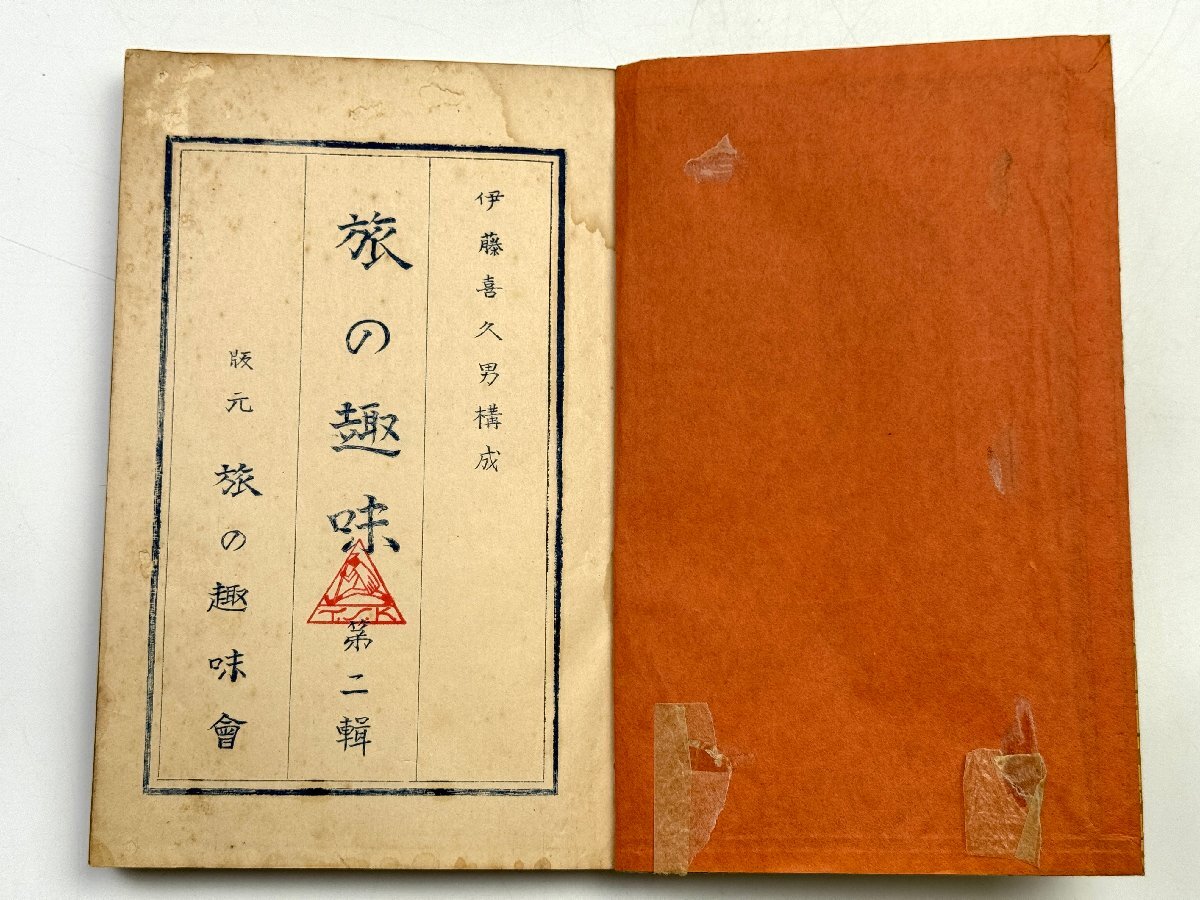 伊藤喜久男構成
旅の趣味 第二輯
T.S.K
版元 旅の趣味會